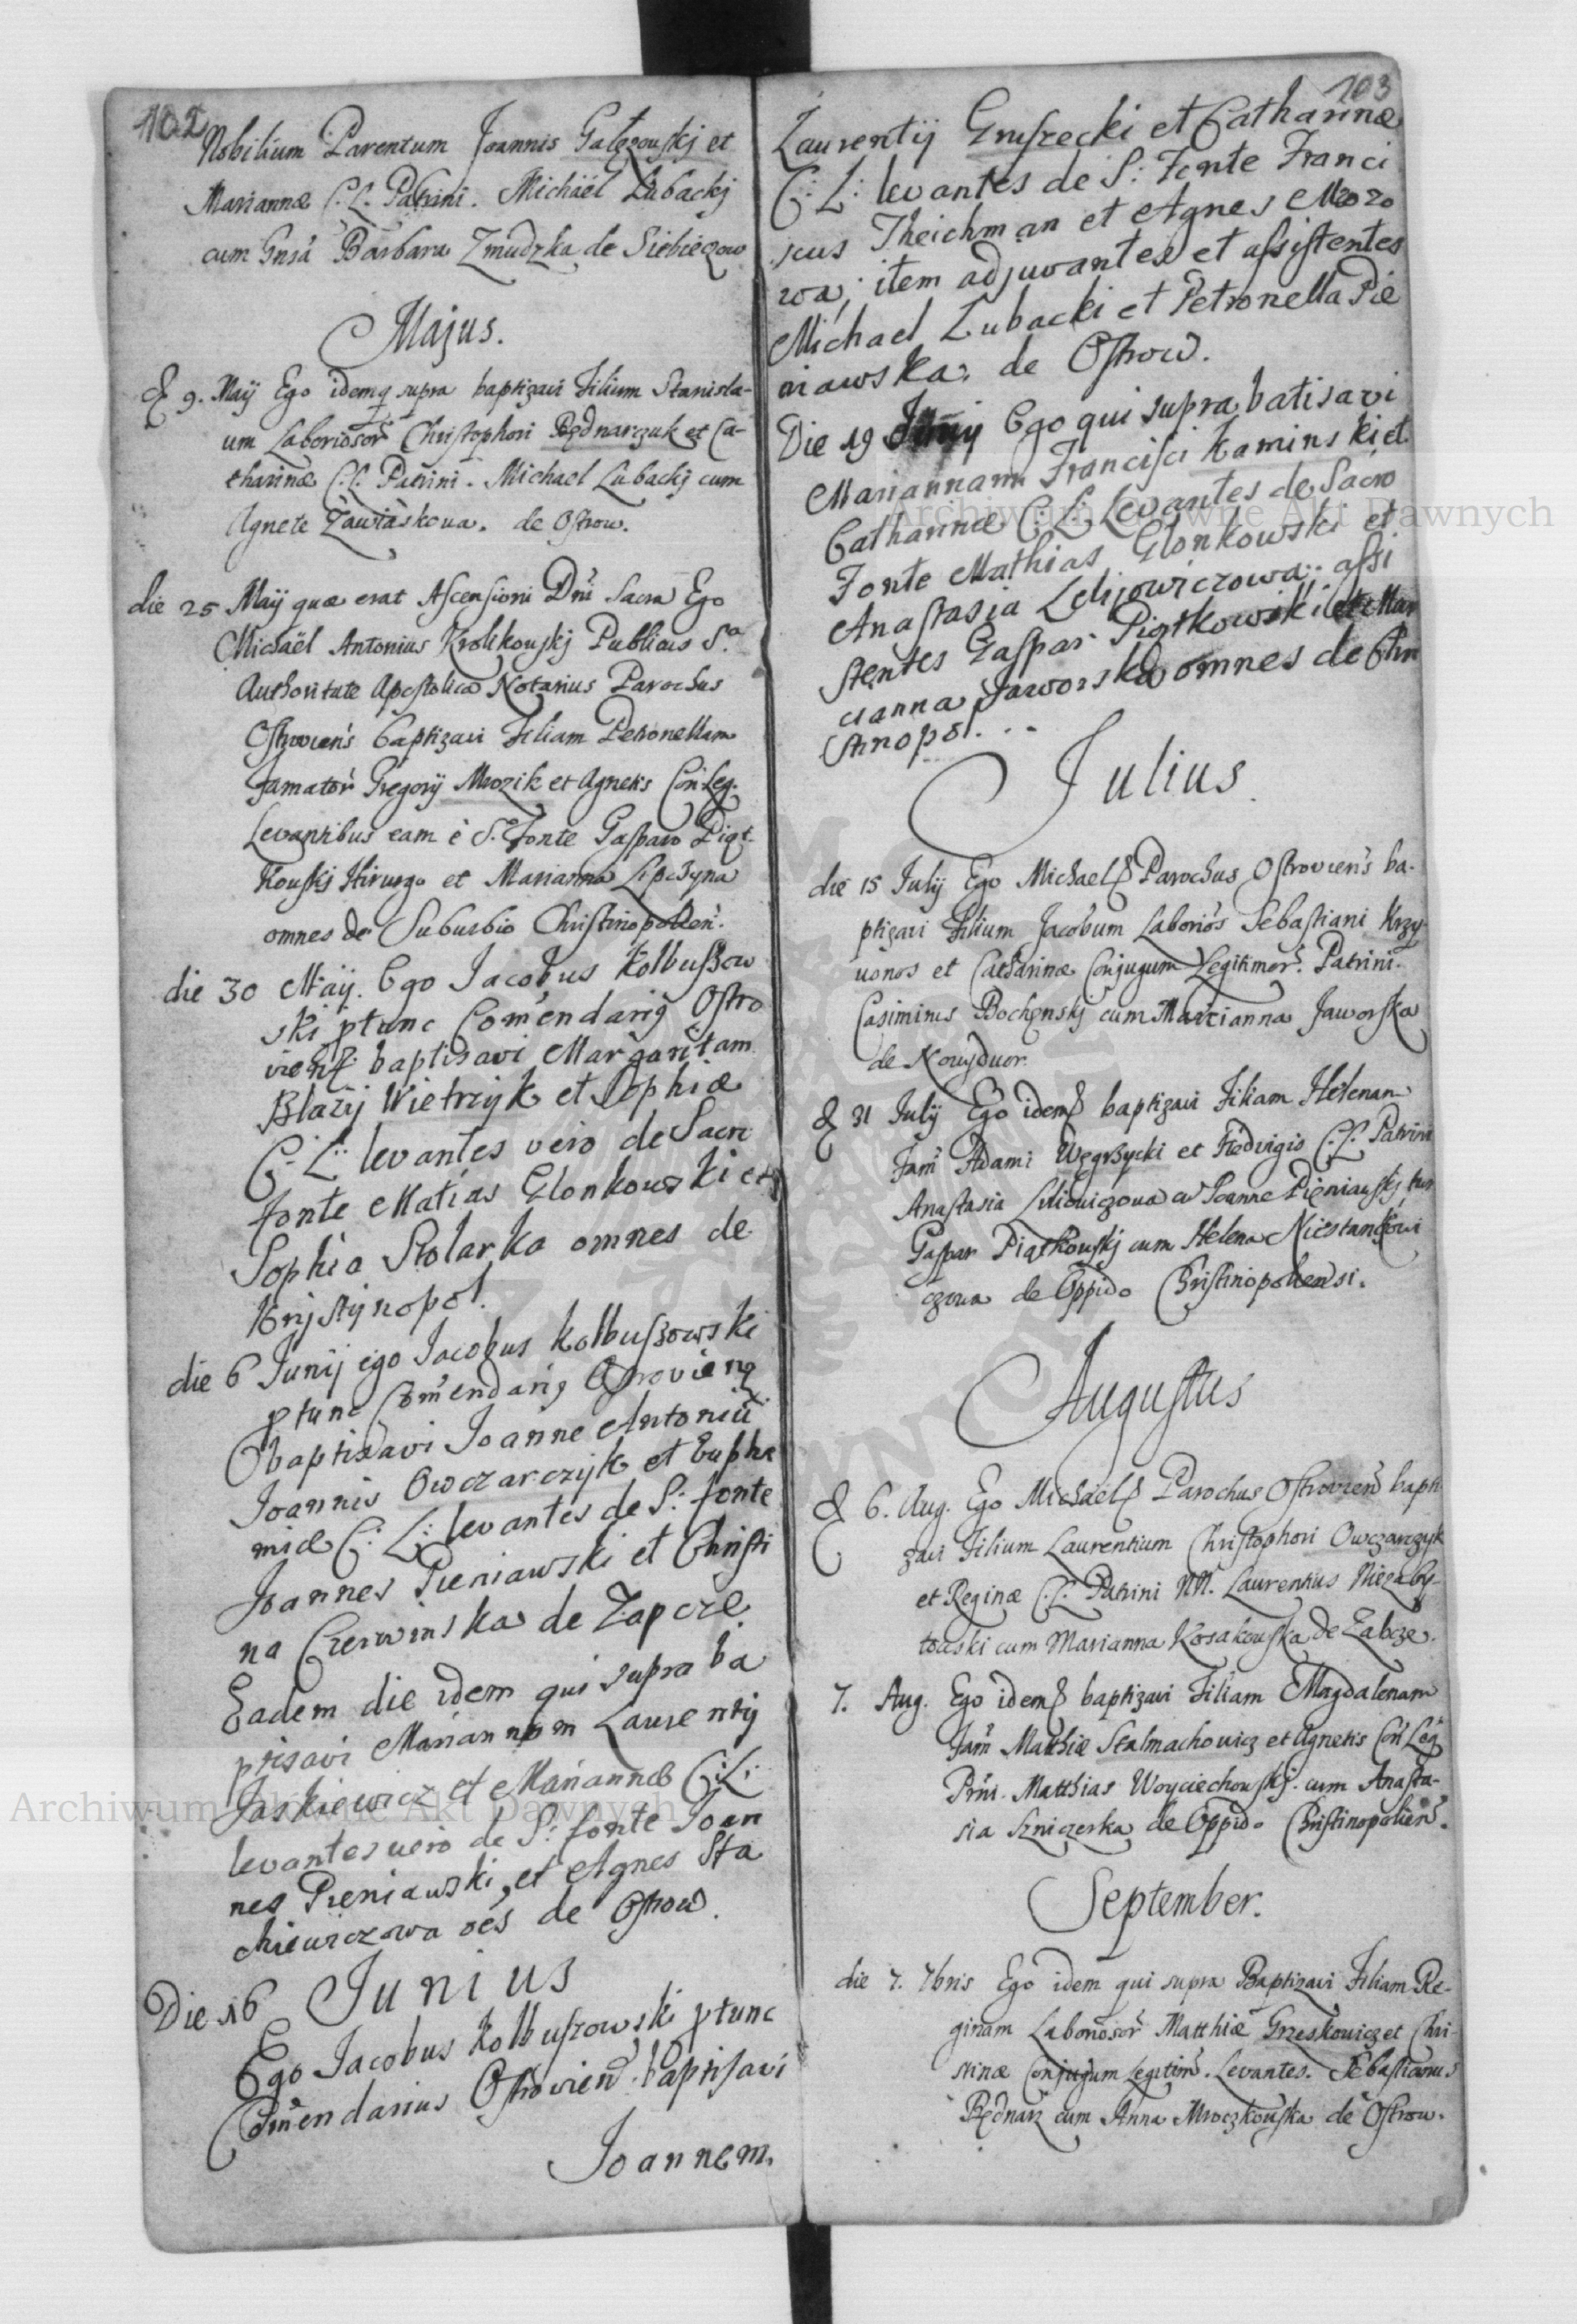 102
Nobilium Parentum Joannis Gałęzouskj et
Mariannæ C. L. Patrini. Michaël Lubackj
cum Gnsã Barbara Zmudzka de Siebieczow
Majus.
D 9. Maij Ego idem q supra baptizavi Filium Stanisla-
um Laboriosor Christophori Będnarzuk et Ca-
tharinæ C.L. Patrini. Michael Lubackj cum
Agnete Zawiaskoua. de Ostrow.
die 25 Maij quæ erat Ascensioni Dni Sacra Ego
Michaël Antonius Krolikouskj Publicus S.a
Authoritate Apostolica Notarius Parochus
Ostrouiens baptizavi Filiam Petronellam
Famator Gregorij Mrozik et Agnetis Con Leg.
Levantibus eam è S. Fonte Gasparo Piąt-
kouskj Hirurgo et Marianna Lipczyna
omnes de Suburbio Christinopolien.
die 30 Maij. Ego Jacobus Kolbuszow
ski ptunc Comendarig Ostro
viens baptisavi Margaritam
Blazij Wietrzyk et Sophiæ
C: L: levantes vero de Sacro
fonte Matias Glonkowski et
Sophia Stolarka omnes de
Krijstijnopol.
die 6 Junij ego Jacobus Kolbuszowski
ptunc Comendarig Ostrovieng
baptisavi Joanne Antoniu
Joannis Owczarczijk et Euphe
miæ C: L: levantes de S: fonte
Joannes Pieniawski et Christi
na Czerwinska de Zapcze
Eadem die idem qui supra ba
ptisavi Mariannam Laurentij
Jaskiewicz et Mariannæ C: L:
levantes vero de S: fonte Joan
nes Pieniawski, et Agnes Sta
chiewiczowa oes de Ostrow.
Junius
Die 16
Ego Jacobus Kolbuszowski ptunc
Comendarius Ostrovien baptisavi
Joannem.
103
Laurentij Gruszecki et Catharinæ
C: L: levantes de S: Fonte Franci
scus Theichman et Agnes Mrozo
wa; item adjuvantes et assistentes
Michael Lubacki et Petronella Pie
niawska: de Ostrow.
Die 19 Junij Ego qui supra batisavi
Mariannam Francisci Kaminski et
Catharinæ C: L: Levantes de Sacro
Fonte Mathias Glonkowski et
Anastasia Lelijowiczowa: assi
stentes Gaspar Piątkowski et Mar
cianna Jaworska omnes de Chri
stinopol...
Julius
die 15 Julij Ego Michael Parochus Ostroviens ba-
ptizavi Filium Jacobum Laborios Sebastiani Krzy-
uonos et Catharinæ Conjugum Legitimor. Patrini.
Casimirus Bochenskj cum Marianna Jaworska
de Nowydwor.
D 31 Julij Ego idem baptizavi Filiam Helenam
Fam Adami Węgrzycki et Hedvigis C.L. Patrini
Anastasia Liliowiczowa cu Joanne Pieniauskj
Gaspar Piątkouskj cum Helena Niestankowi
czowa de Oppido Christinopoliensi.
Augustus
D 6. Aug. Ego Michaël Parochus Ostrovien bapti
zavi Filium Laurentium Christophori Owczarzyk
et Reginæ C.L. Patrini NN. Laurentius Niezaby-
touski cum Marianna Kosakouska de Zabcze.
7. Aug. Ego idem baptizavi Filiam Magdalenam
Fam Matthiæ Stalmachowicz et Agnetis Con Leg
Prni. Matthias Woyciechouskj cum Anasta-
sia Szniczerka de Oppido Christinopolien.
September.
die 7. 7bris Ego idem qui supra Baptizavi Filiam Re-
ginam Laboriosor Matthiæ Grzeskowicz et Chri-
stinæ Conjugum Legitim. Levantes. Sebastianus
Będnarz cum Anna Mroczkouska de Ostrow.
Archiwum Główne Akt Dawnych
Archiwum Główne Akt Dawnych